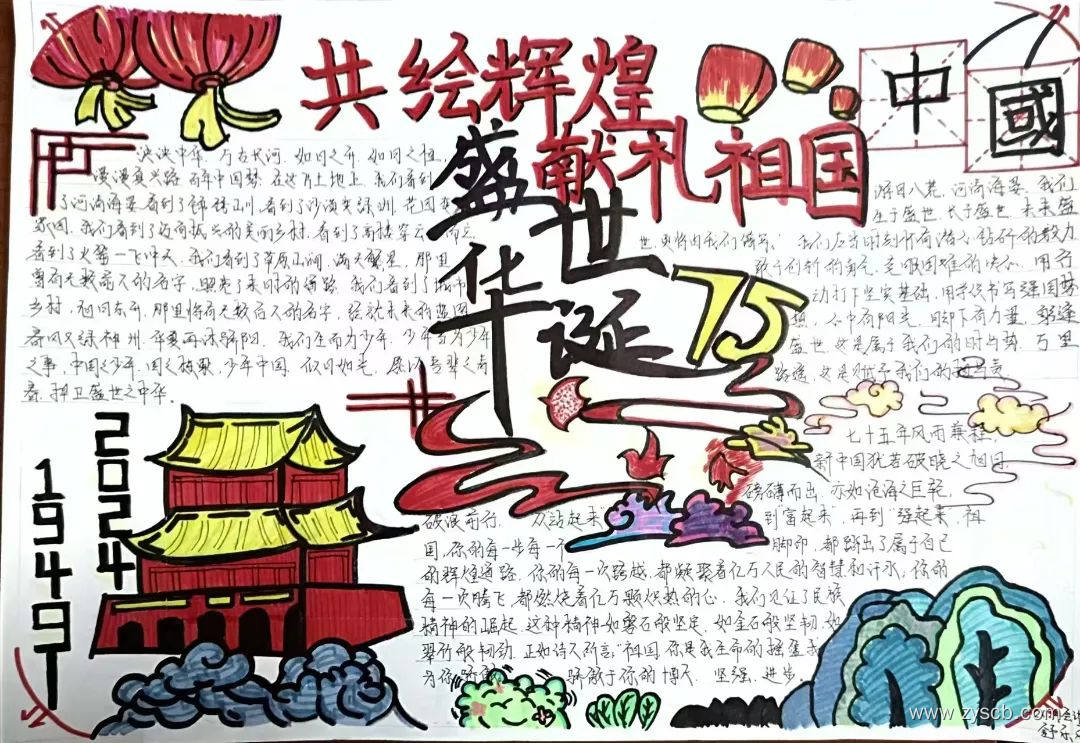 共绘辉煌
献礼祖国
盛世
华诞
75
中國
泱泱中华,万古长河,如日之升,如月之恒,
漫漫复兴路,百年中国梦,在这片土地上,我们看到
了河清海晏,看到了锦绣山川,看到了沙漠变绿洲,花园变
家园,我们看到了迈向振兴的美丽乡村,看到了高楼穿云
看到了火箭一飞冲天,我们看到了草原山涧,满天繁星,那里
曾有无数前人的名字,照亮了来时的路,我们看到了城市
乡村,旭日东升,那里将有无数后人的名字,绘就未来的蓝图
春风又绿神州,华夏再沐骄阳,我们生而为少年,少年当为少年
之事,中国之少年,国之栋梁,少年中国,似火如光,愿以吾辈之青
春,捍卫盛世之中华。
游目八荒,河清海晏,我们
生于盛世,长于盛世,未来盛
世,更将由我们缔写。我们应当时刻怀有潜心钻研的毅力
敢于创新的勇气,克服困难的决心,用行
动打下坚实基础,用学识书写强国梦
想,心中有阳光,脚下有力量,躬逢
盛世,这是属于我们的时与势,万里
路遥,这是赋予我们的
2024
1949
七十五年风雨兼程,
新中国犹若破晓之旭日
磅礴而出,亦如沧海之巨轮,
破浪前行,从"站起来"到"富起来",再到"强起来",祖
国,你的每一步每一个脚印,都踏出了属于自己
的辉煌道路,你的每一次跨越,都凝聚着亿万人民的智慧和汗水,你的
每一次腾飞,都燃烧着亿万颗炽热的心,我们见证了民族
精神的崛起,这种精神如磐石般坚定,如金石般坚韧,如
翠竹般韧劲,正如诗人所言"祖国,你是我生命的摇篮,我
为你骄傲 骄傲于你的博大、坚强、进步。
www.zyscb.com